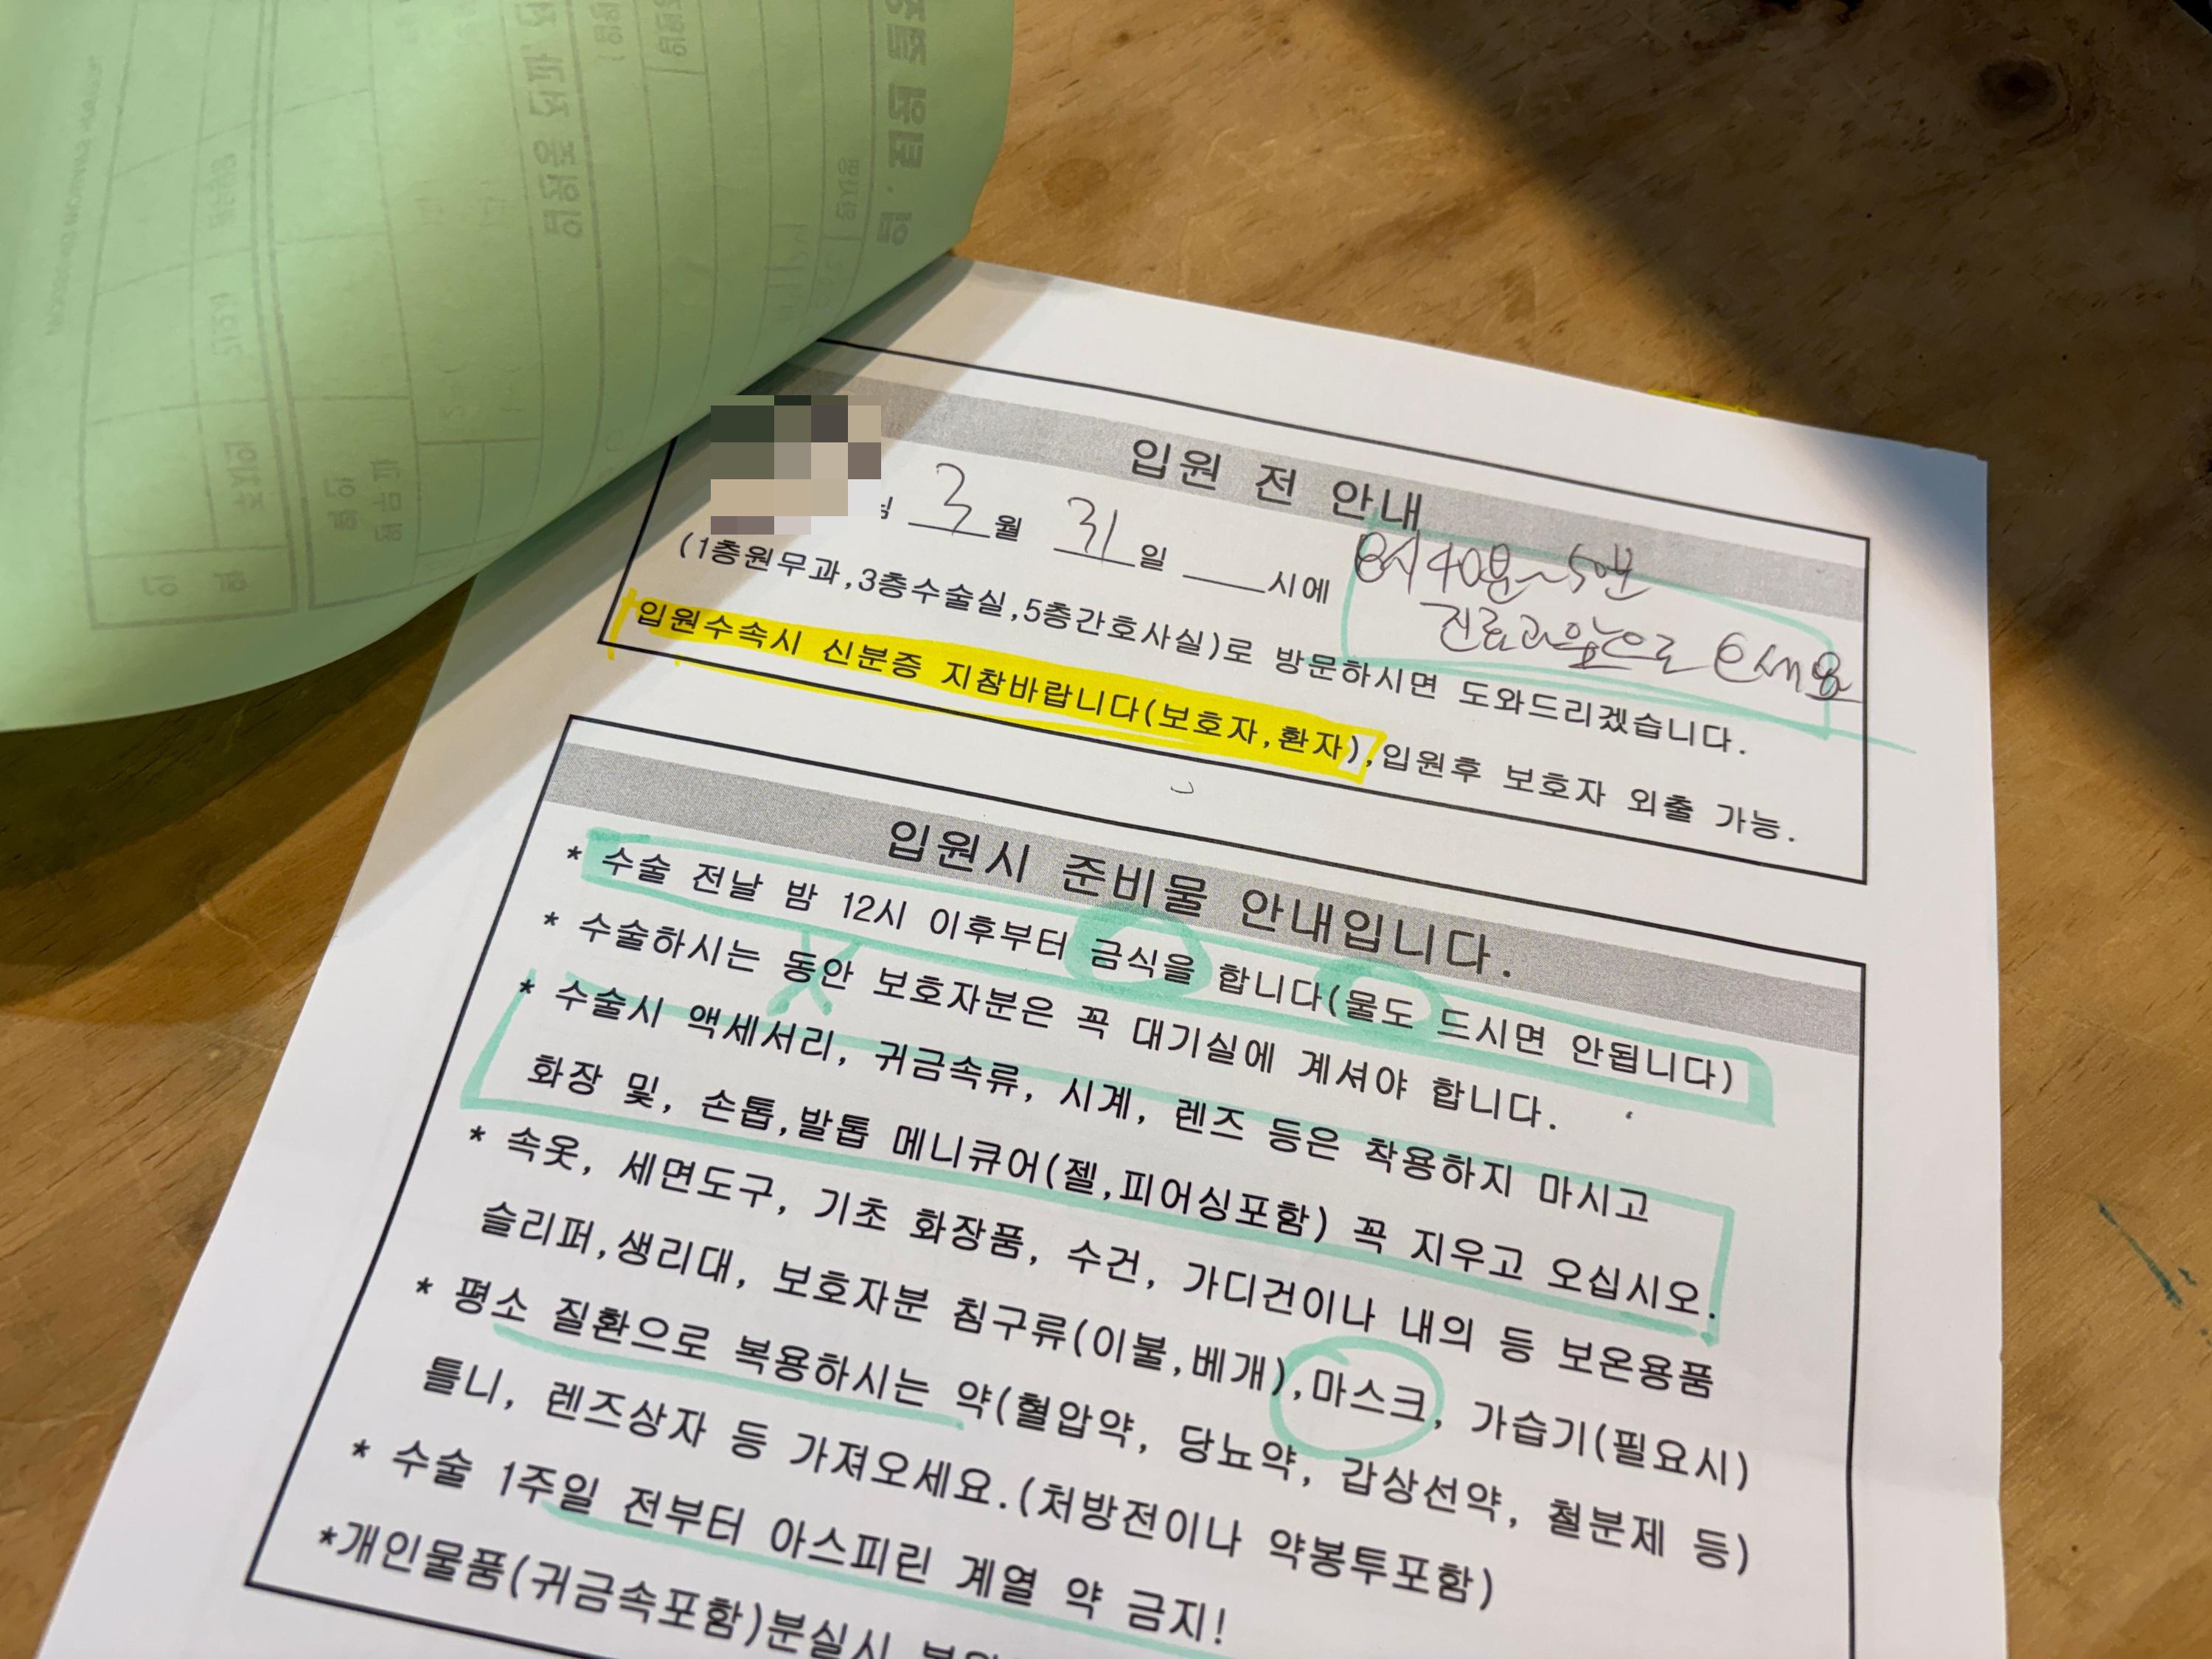 입원 전 안내
3월 31일 ___시에 8시40분~50분
진료과앞으로 오세요
(1층원무과,3층수술실,5층간호사실)로 방문하시면 도와드리겠습니다.
입원수속시 신분증 지참바랍니다(보호자,환자),입원후 보호자 외출 가능.
입원시 준비물 안내입니다.
* 수술 전날 밤 12시 이후부터 금식을 합니다(물도 드시면 안됩니다)
* 수술하시는 동안 보호자분은 꼭 대기실에 계셔야 합니다.
* 수술시 액세서리, 귀금속류, 시계, 렌즈 등은 착용하지 마시고
화장 및, 손톱,발톱 메니큐어(젤,피어싱포함) 꼭 지우고 오십시오.
* 속옷, 세면도구, 기초 화장품, 수건, 가디건이나 내의 등 보온용품
슬리퍼,생리대, 보호자분 침구류(이불,베개),마스크, 가습기(필요시)
* 평소 질환으로 복용하시는 약(혈압약, 당뇨약, 갑상선약, 철분제 등)
틀니, 렌즈상자 등 가져오세요.(처방전이나 약봉투포함)
* 수술 1주일 전부터 아스피린 계열 약 금지!
*개인물품(귀금속포함)분실시